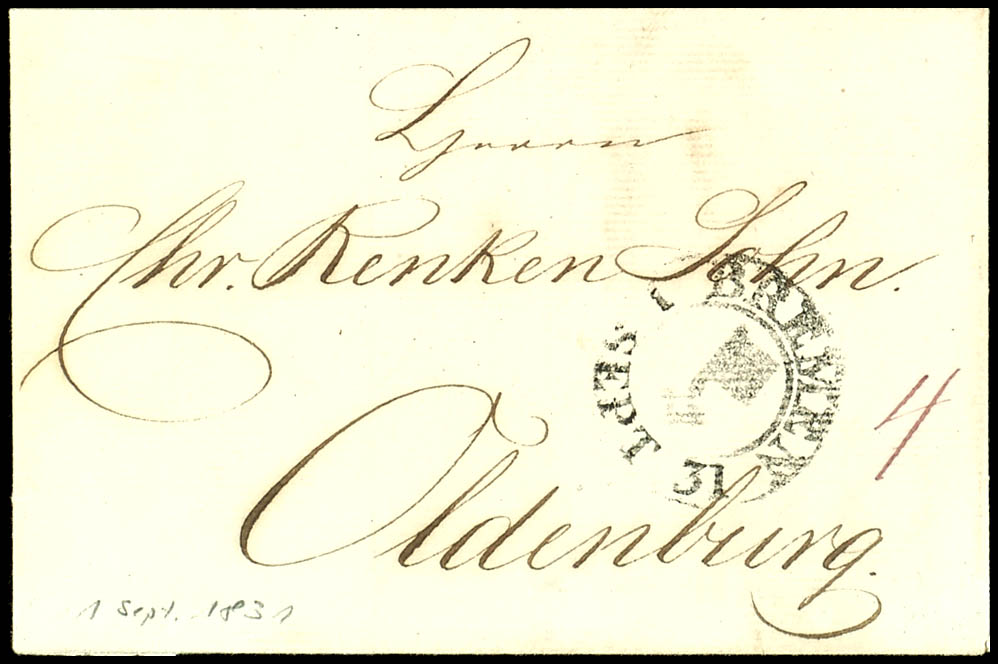 Herrn
Chr. Renken Sohn.
1 BREMEN
SEPT
31
4
Oldenburg.
1 Sept. 1831